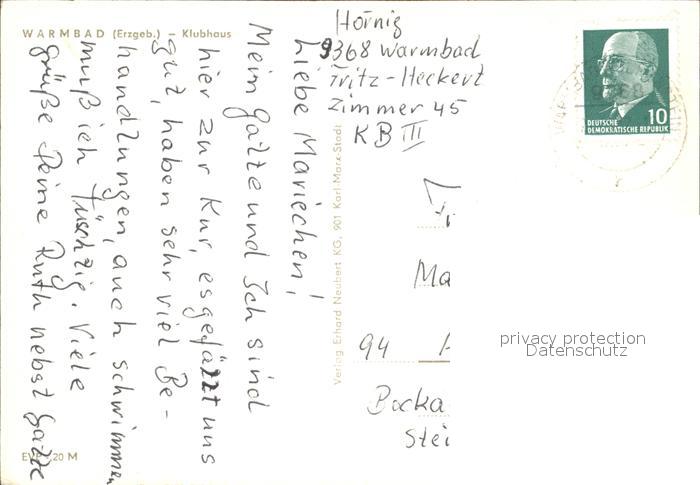 WARMBAD (Erzgeb.) – Klubhaus
Liebe Mariechen!
Mein Gatte und Ich sind
hier zur Kur, es gefällt uns
gut, haben sehr viel Be-
handlungen, auch schwimmen
muß ich tüchtig. Viele
Grüße Deine Ruth nebst Gatte
EVP –.20 M
Verlag Erhard Neubert KG, 901 Karl-Marx-Stadt
Hornig
9368 Warmbad
Fritz-Heckert
Zimmer 45
KB III
DEUTSCHE
DEMOKRATISCHE REPUBLIK
10
Ma
94
Bocka
Stei
privacy protection
Datenschutz